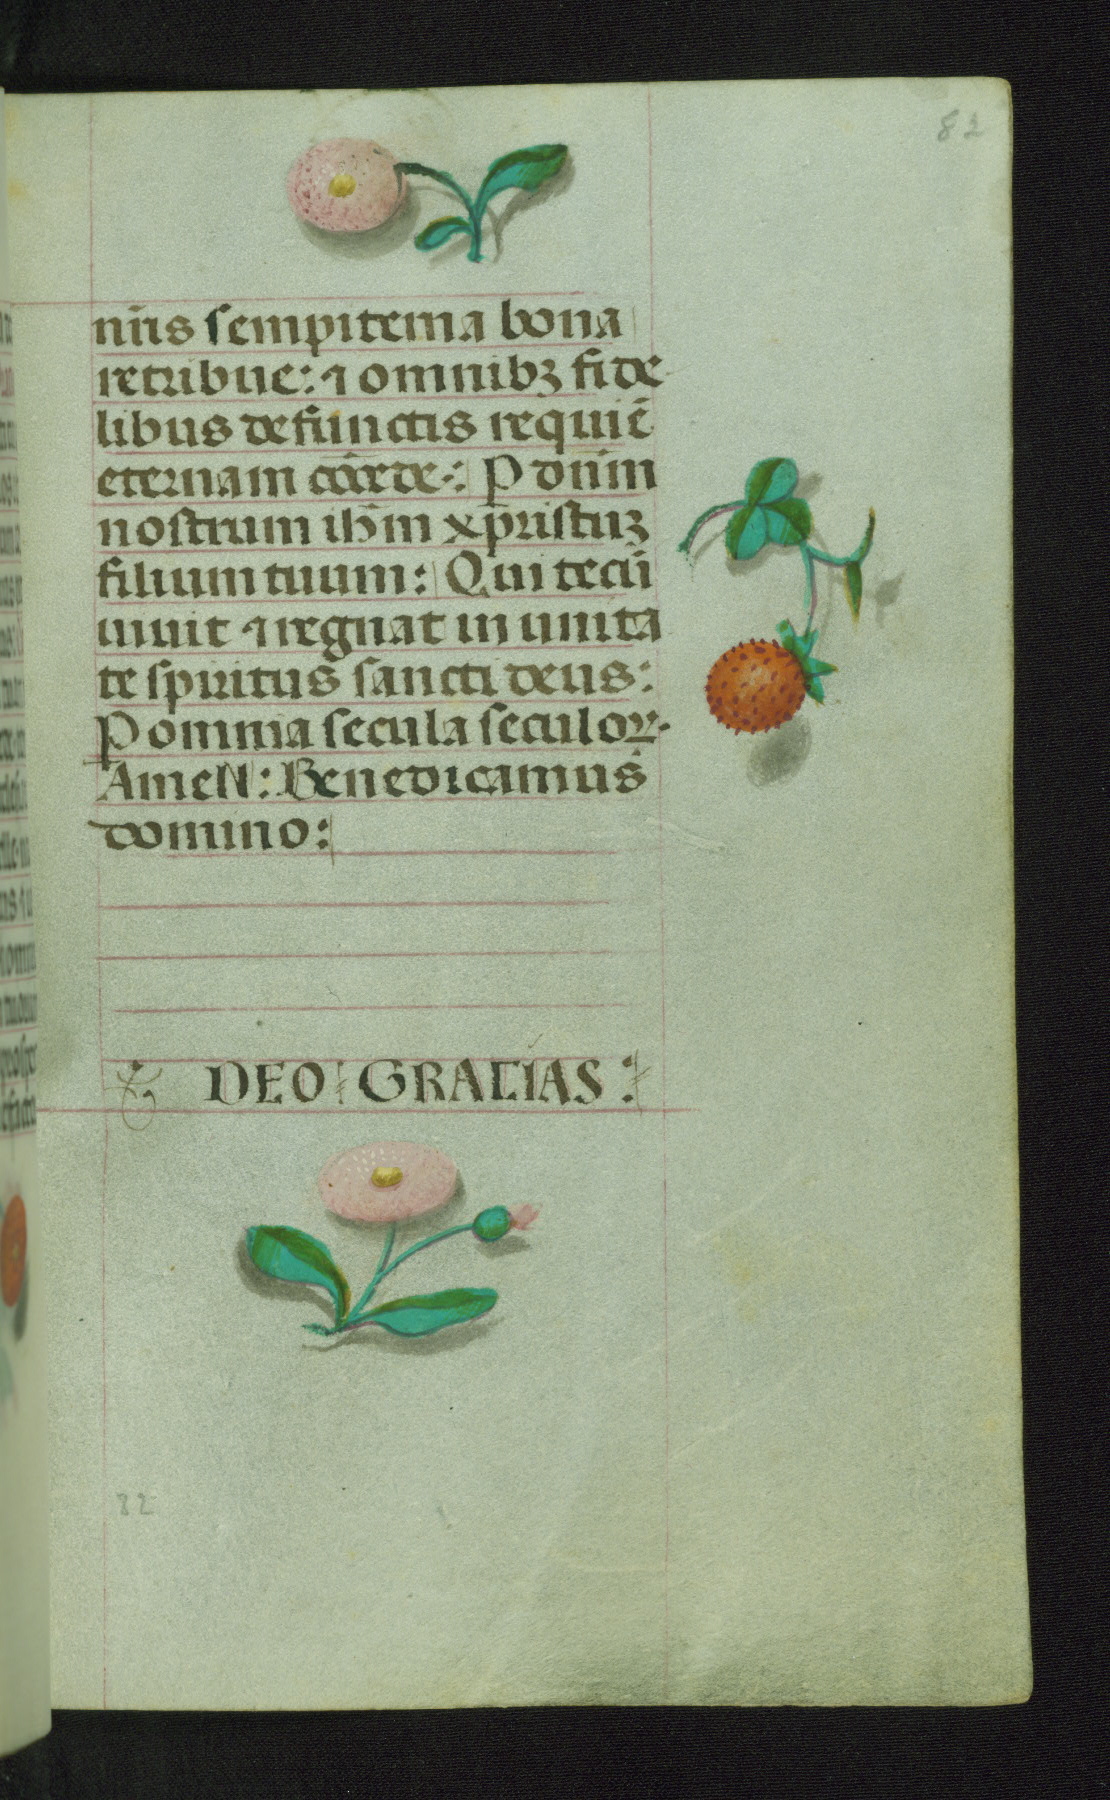 82
nr̄is sempiterna bona
retribue: ⁊ omnibꝫ fide
libus defunctis requiē
eternam cōcede·: P dn̄m
nostrum ih̄m xp̄ristuꝫ
filium tuum: Qui tecū
uiuit ⁊ regnat in unita
te spiritus sancti deus:
P omnia secula seculoꝝ·
AmeN: Benedicamus
domino:
DEO: GRACIAS:
82